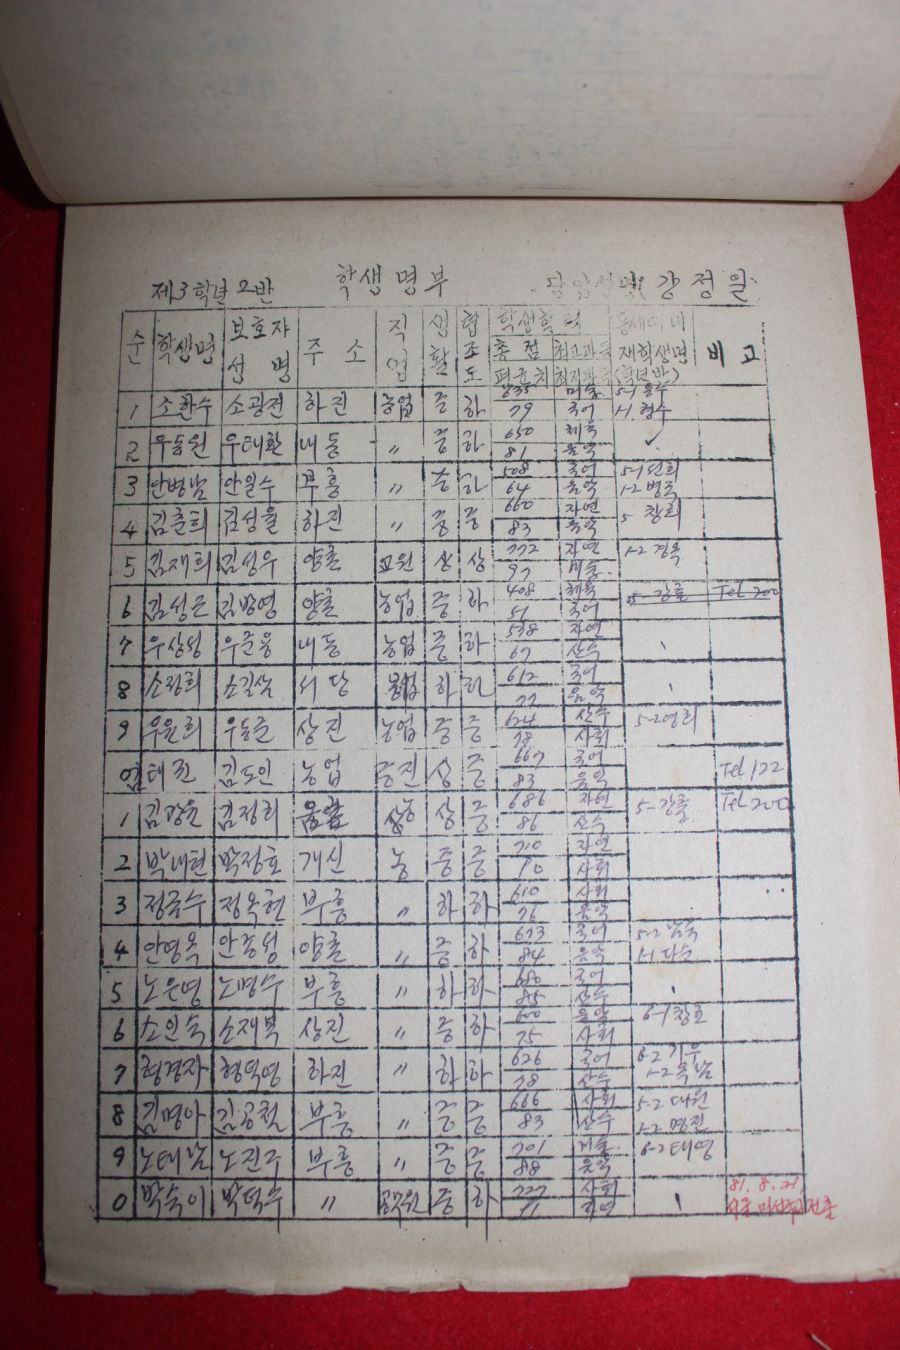 제3학년 2반 학생명부 담임성명( 강정일
순 학생명 보호자 성명 주소 직업 생활 협조도 학생학력 총점 평균치 최고과목 최저과목 동세대내 재학생명 (학년반) 비고
1 소환수 소광전 하진 농업 중 하 79 미술 국어 5-1 1-1 형수
2 우동원 우태환 내동 〃 중 하 650 81 체육 음악
3 안병남 안일수 부흥 〃 중 하 508 64 국어 음악 5-1 1-2 병국
4 김춘희 김성율 하진 〃 중 중 660 83 자연 5- 창희
5 김재희 김성우 양촌 교원 상 상 772 97 자연 미술 1-2 경옥
6 김성은 김방영 양촌 농업 중 하 408 51 체육 국어 5- Tel 200
7 우상성 우준웅 내동 농업 중 하 538 67 자연 산수
8 소정희 서당 농업 하 하 612 77 국어 음악
9 우윤희 우동준 상진 농업 중 중 624 78 산수 사회 5-2 영희
0 김도인 농업 중진 상 중 667 83 국어 음악 Tel 122
1 김광윤 김정희 상 중 686 86 자연 산수 5- Tel 200
2 박내현 박정호 개신 농 중 중 710 자연 사회
3 정금수 정옥현 부흥 〃 하 하 610 76 사회 음악
4 안영옥 안종성 양촌 〃 중 하 673 84 국어 음악 5-2 남국 1-1 다수
5 노은영 노명수 부흥 〃 하 하 680 85 국어 산수
6 소인숙 소재복 상진 〃 중 하 600 75 음악 사회 6-1 창호
7 형경자 형익영 하진 〃 하 하 626 78 국어 산수 6-2 기우 1-2 옥남
8 김명아 김공철 부흥 〃 중 중 666 83 사회 산수 5-2 대원 1-2 명진
9 노태남 노진주 부흥 〃 중 중 701 88 미술 음악 6-2 태영
0 박숙이 박덕수 〃 공무원 중 하 727 사회 자연 81. 8. 21.